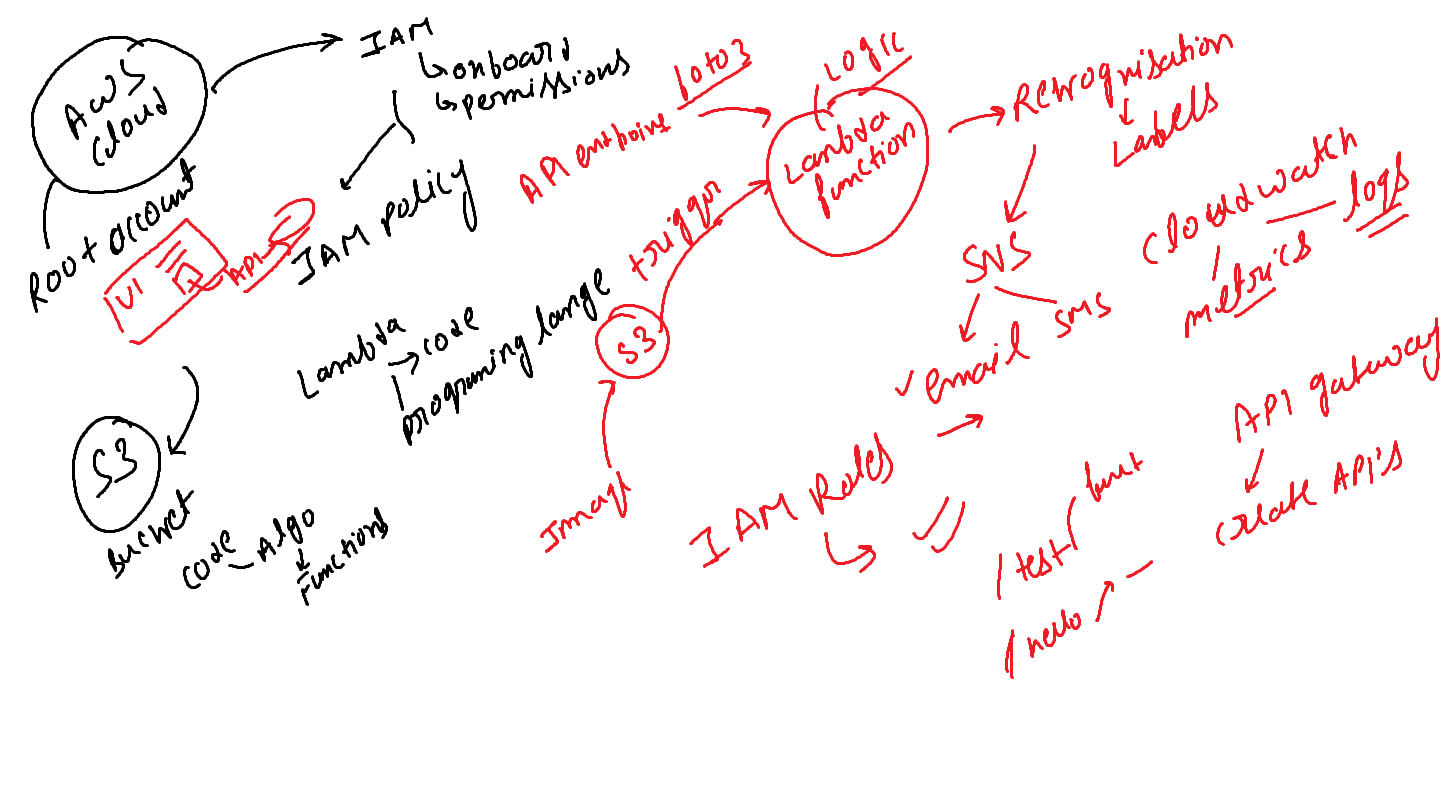 AWS
Cloud
Root account
IAM
onboard
permissions
IAM policy
UI
API
S3
Bucket
code
Algo
Functions
Lambda
code
programing lange
API
boto3
Logic
Lambda
function
trigger
S3
Image
Labels
SNS
email
SMS
cloudwatch
logs
metrics
IAM Roles
API gateway
create API's
/test
/hello